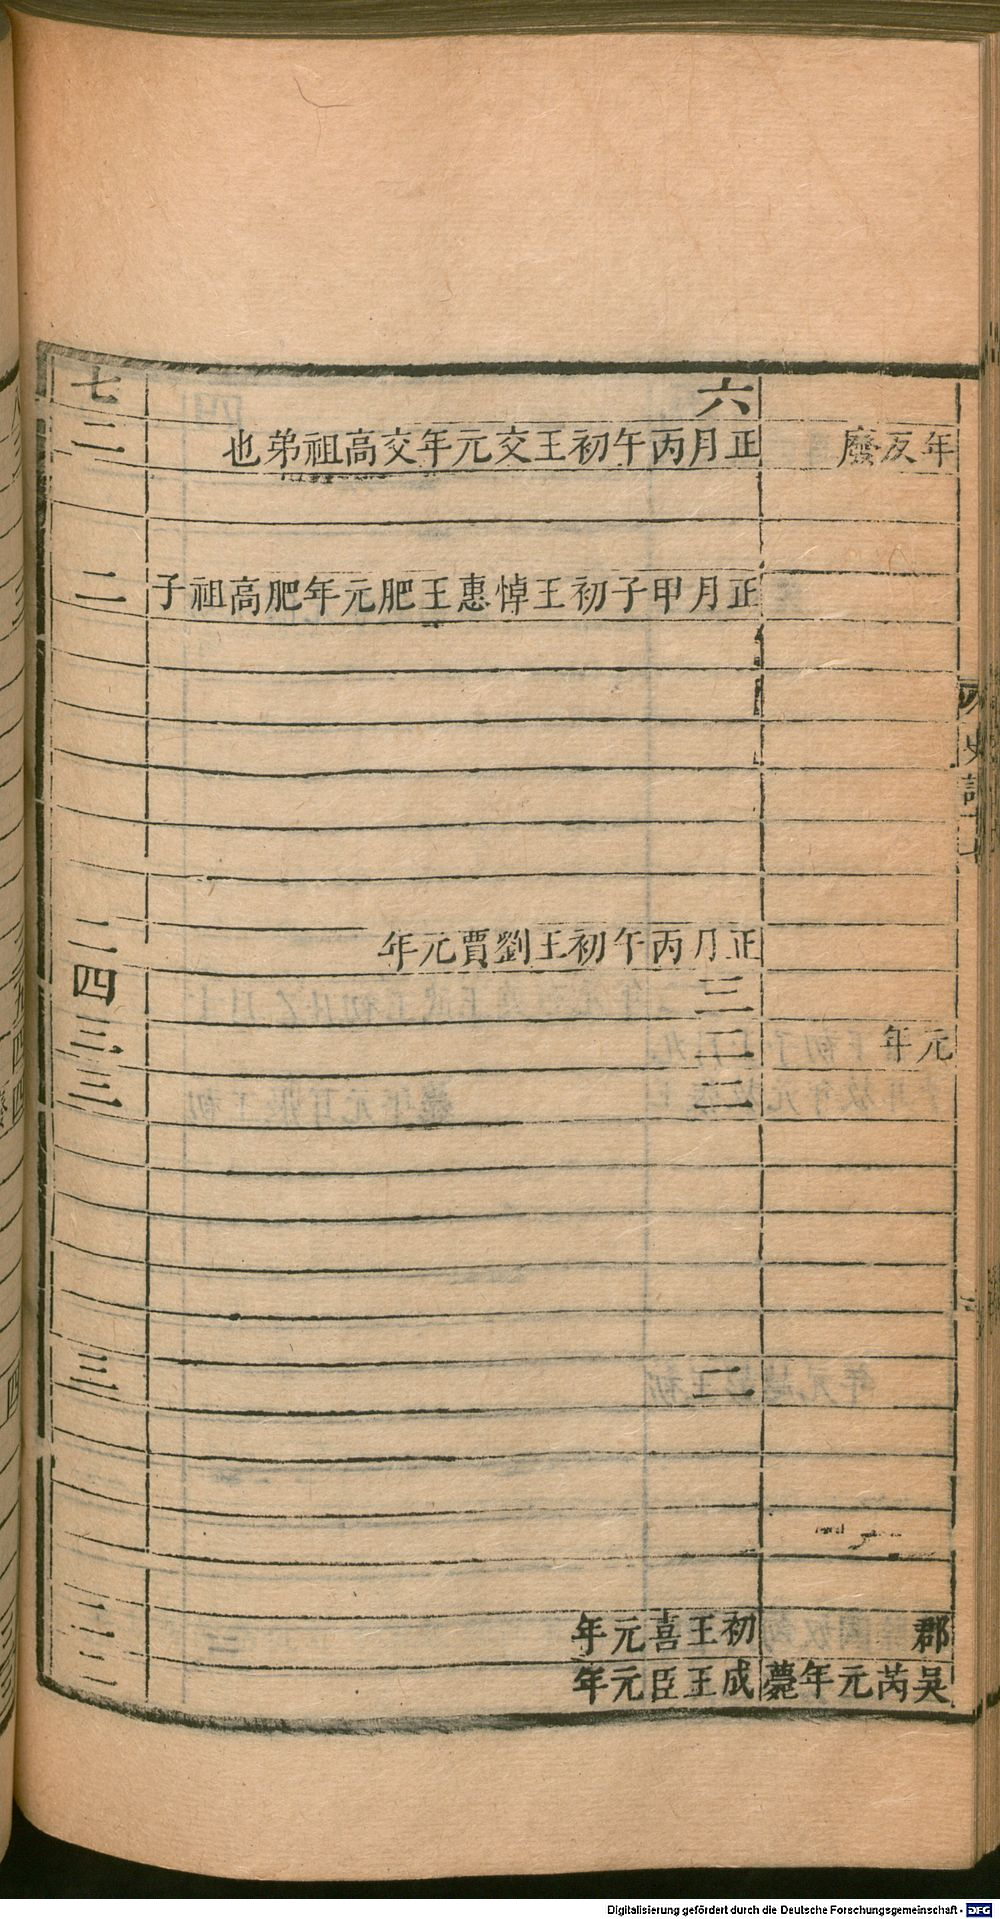 年反廢
元年
郡
吳芮元年薨
六
正月丙午初王交元年交高祖弟也
正月甲子初王悼惠王肥元年肥高祖子
正月丙午初王劉賈元年
三
二
二
二
初王喜元年
成王臣元年
七
二
二
二
四
三
三
三
二
二
史記十七
Digitalisierung gefördert durch die Deutsche Forschungsgemeinschaft - DFG